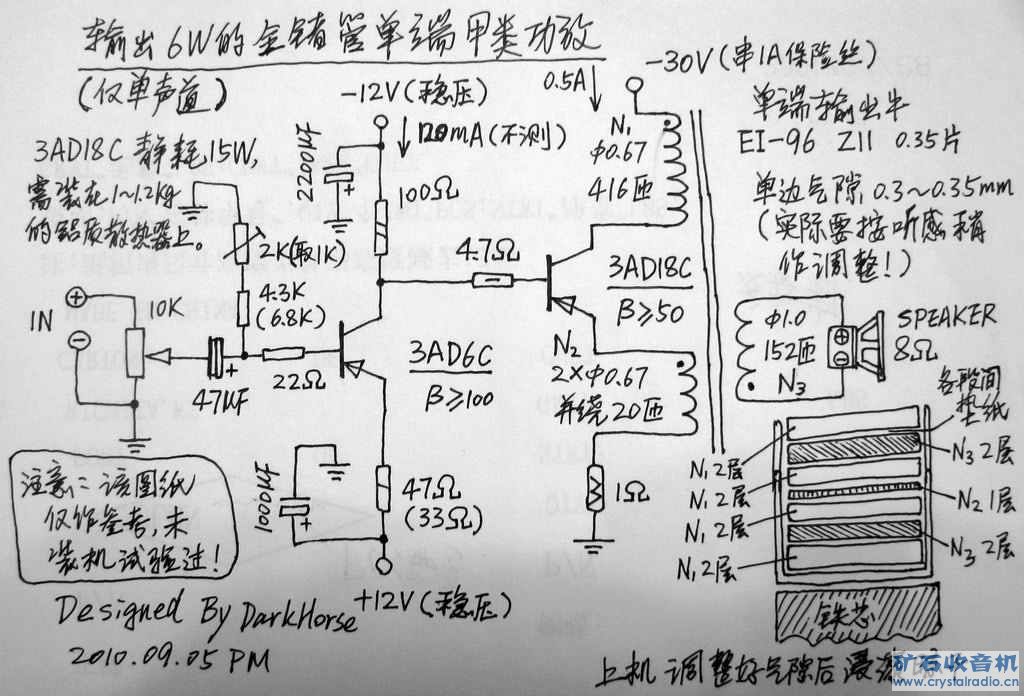 输出6W的金锗管单端甲类功放
(仅单声道)
3AD18C 静耗15W,
需装在1~1.2kg
的铝质散热器上。
-12V(稳压)
120mA(不测)
2200μF
100Ω
2K(取1K)
4.3K
(6.8K)
IN
10K
47μF
22Ω
3AD6C
β≥100
47Ω
(33Ω)
1000μF
+12V(稳压)
4.7Ω
3AD18C
β≥50
0.5A
-30V(串1A保险丝)
N₁
Φ0.67
416匝
N₂
2×Φ0.67
并绕20匝
1Ω
单端输出牛
EI-96 Z11 0.35片
单边气隙0.3~0.35mm
(实际要按听感稍
作调整!)
Φ1.0
152匝
N₃
SPEAKER
8Ω
各段间
垫纸
N₁2层
N₃2层
N₁2层
N₂1层
N₁2层
N₃2层
N₁2层
铁芯
上机调整好气隙后浸
注意:该图纸
仅作参考,未
装机试验过!
Designed By DarkHorse
2010.09.05 PM
矿石收音机
www.crystalradio.cn